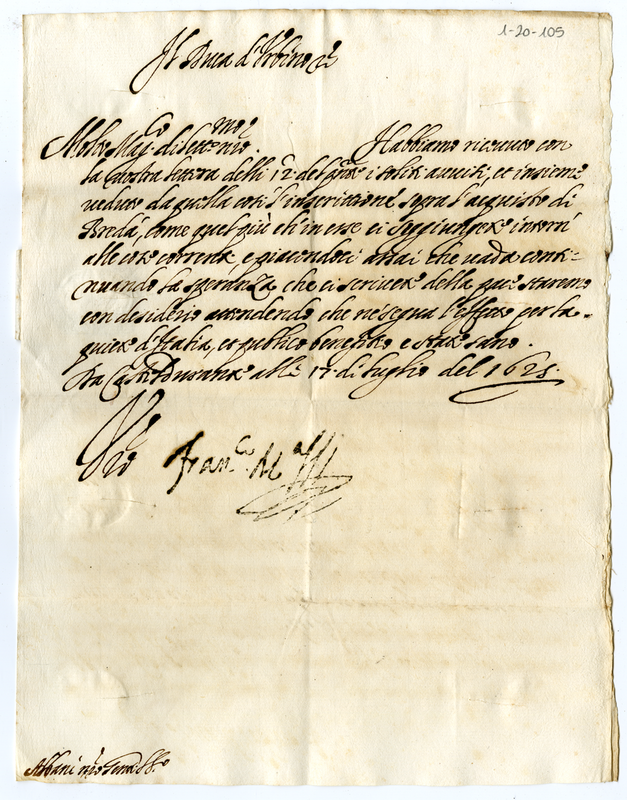 1-20-105
Il Duca d'Urbino &c
Molto Mag.co dilett.mo n.ro. Habbiamo riceuuto con
la vostra lettera delli 12 del i soliti auuisi, et insieme
ueduto da quella l'inscrittione sopra l'acquisto di
Bredà, come quel più ch'in esse ci soggiungete intorno
alle cose correnti, e piacendoci assai che uada conti-
nuando la speranza che ci scriuete della pace staremo
con desiderio attendendo che ne segua l'effetto per la
quiete d'Italia, et publico benefitio e state sano.
Da Castel Durante alli di luglio del 1625.
Fran.co M.a
Abbani n.ro